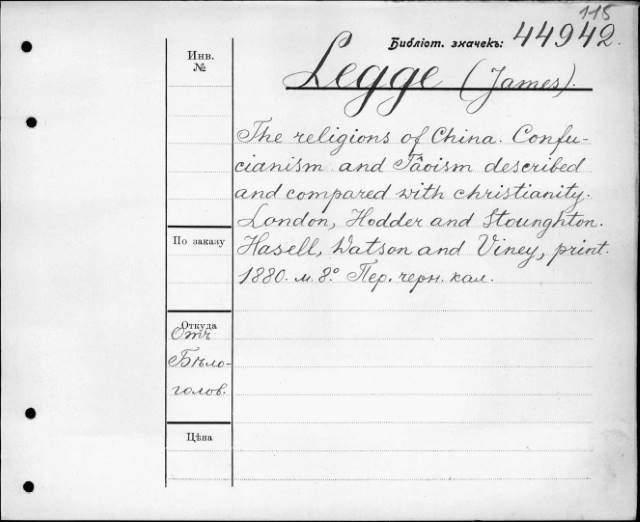 115
Библіот. значекъ: 44942.
Инв.
№
Legge (James).
The religions of China. Confu-
cianism and Tâoism described
and compared with christianity.
London, Hodder and Stoughton.
По заказу
Hasell, Watson and Viney, print.
1880. м. 8º. Пер. черн. кал.
Откуда
Отъ
Бѣло-
голов.
Цѣна